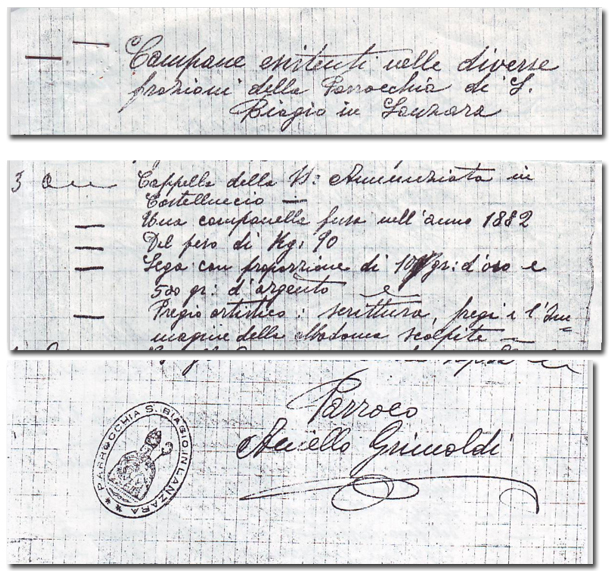 Campane esistenti nelle diverse
frazioni della Parrocchia di S.
Biagio in Lanzara
3 Cappella della V: Annunziata in
Castelluccio
Una campanella fusa nell'anno 1882
Del peso di Kg: 90
Lega con proporzione di gr: d'oro e
500 gr: d'argento
Pregio artistico: scrittura, fregi e l'Im-
magine della Madonna scolpite
Parroco
Aniello Grimaldi
PARROCCHIA S. BIAGIO IN LANZARA